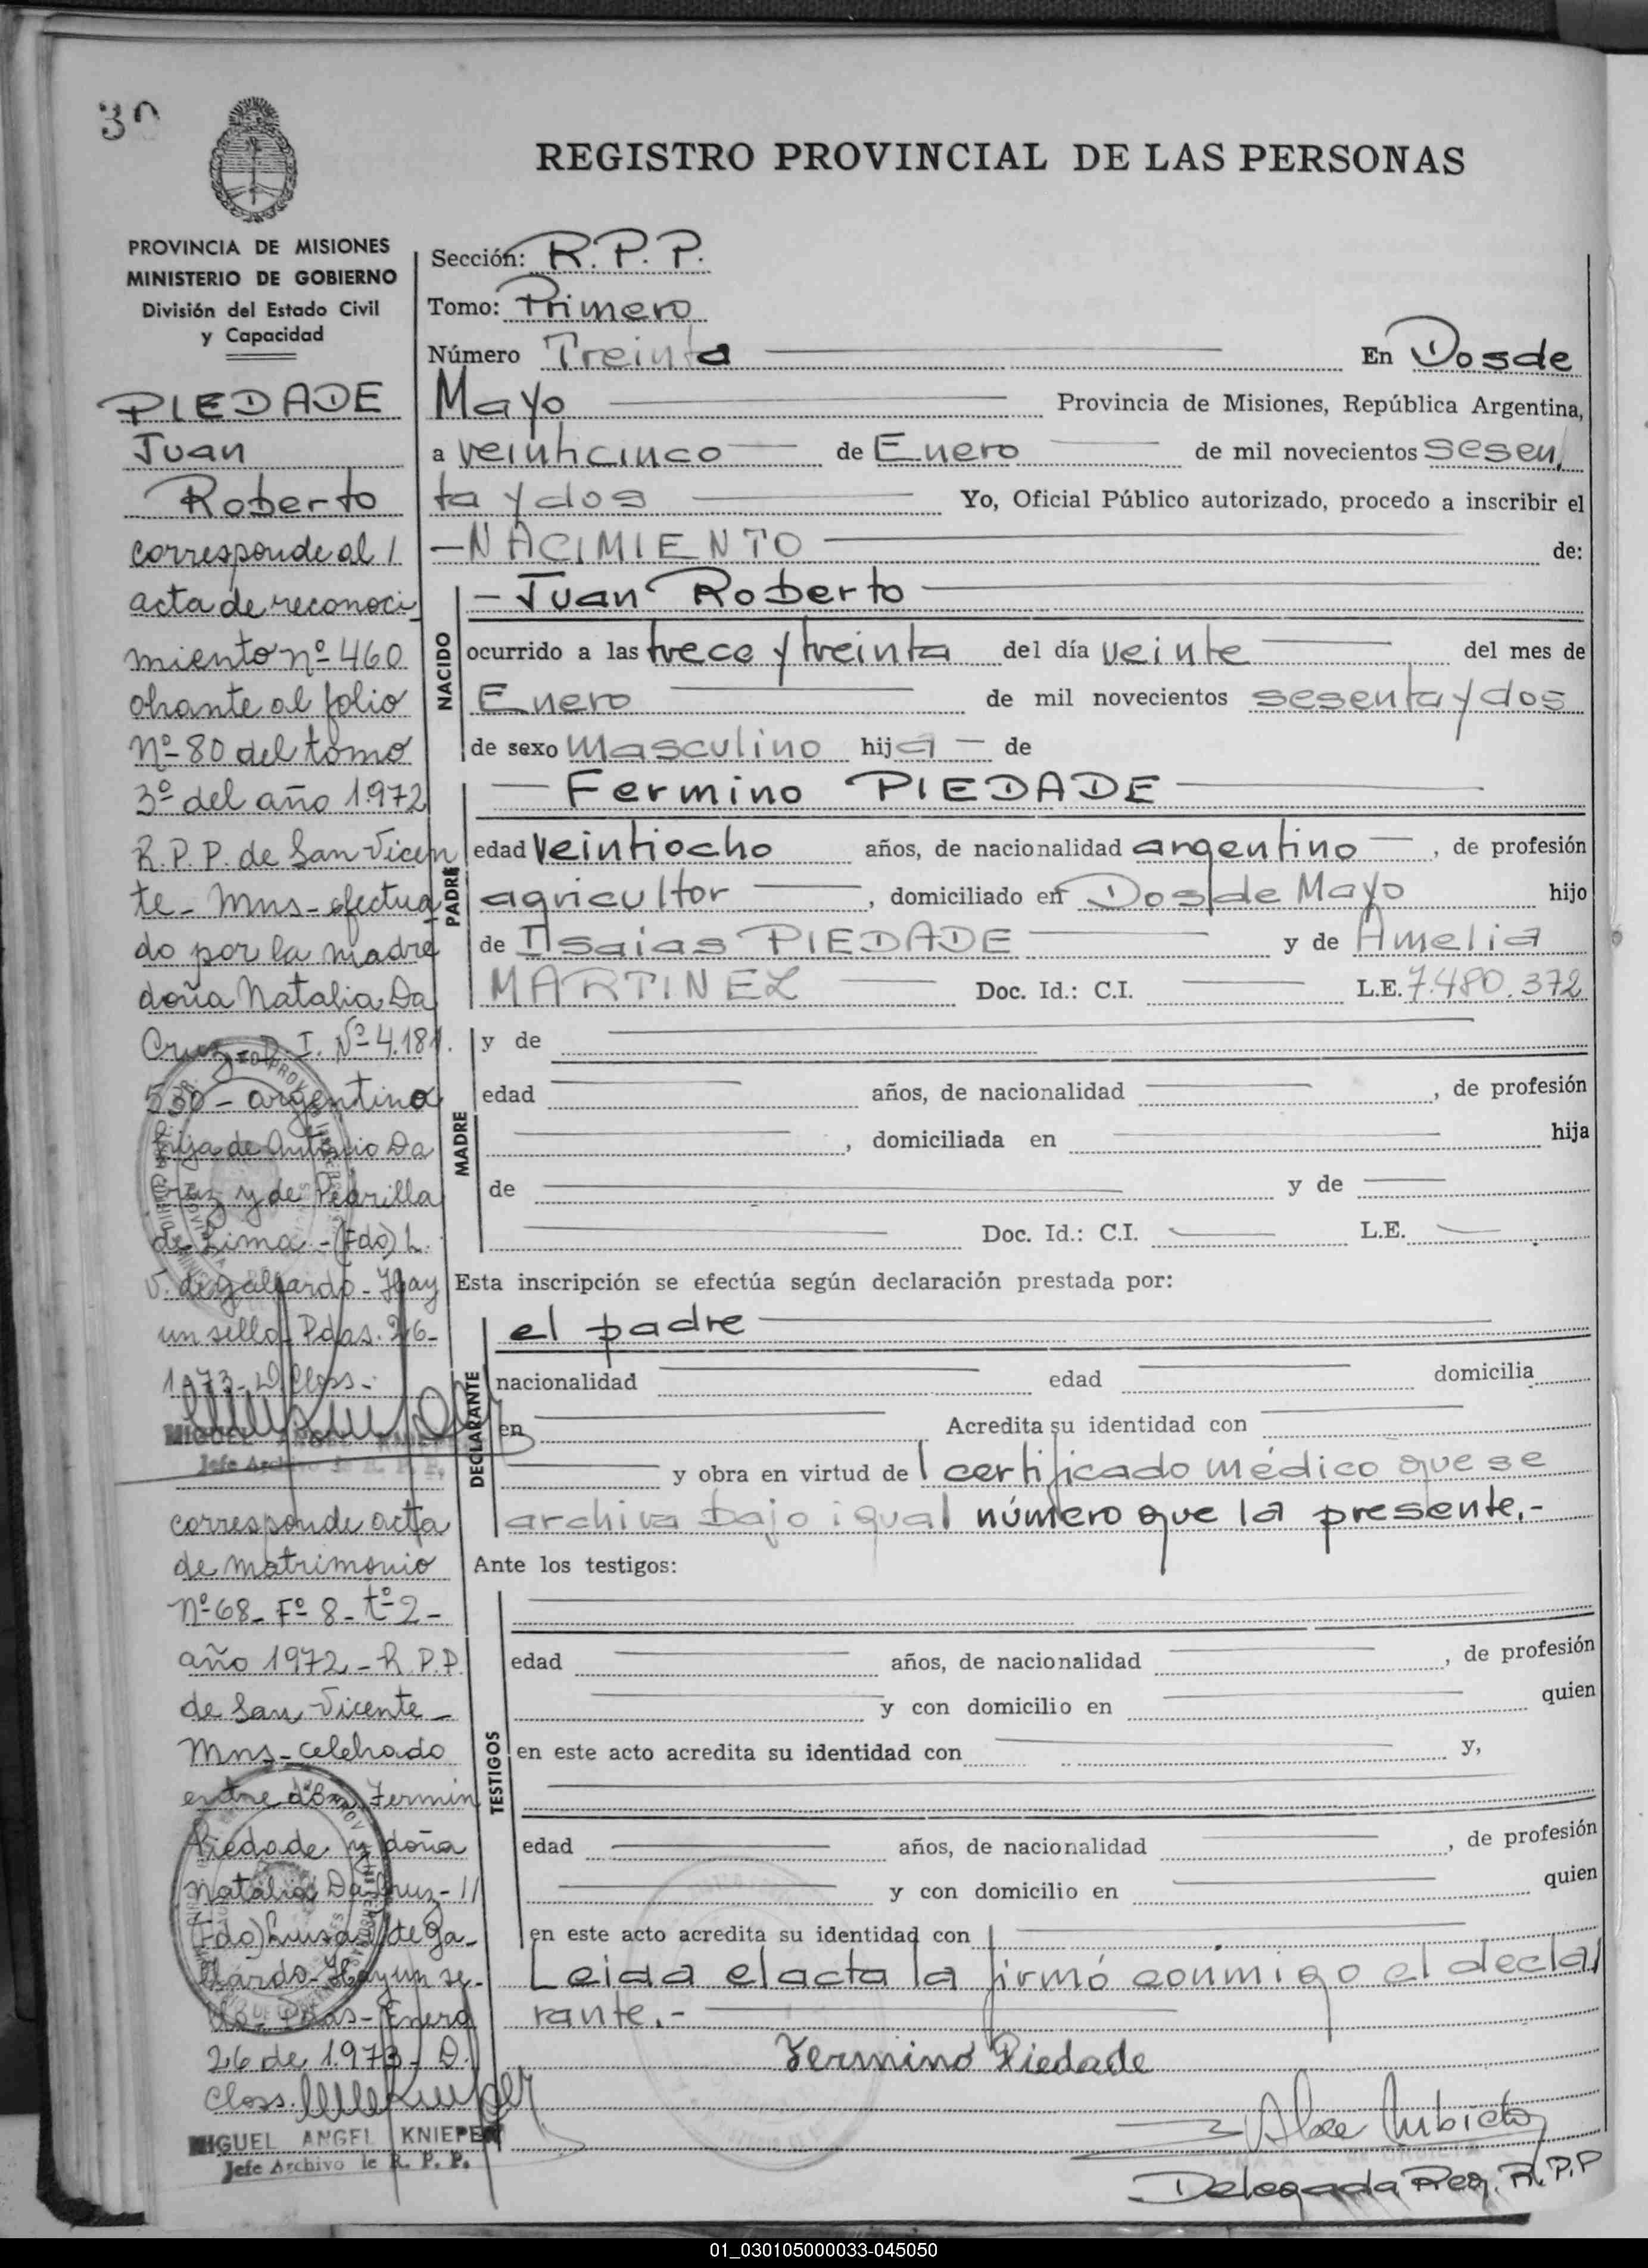 30
REGISTRO PROVINCIAL DE LAS PERSONAS
PROVINCIA DE MISIONES
MINISTERIO DE GOBIERNO
División del Estado Civil
y Capacidad
PIEDADE
Juan
Roberto
corresponde al /
acta de reconoci
miento nº 460
obrante al folio
Nº 80 del tomo
3º del año 1972
R.P.P. de San Vicen
te - Mns - efectua
do por la madre
doña Natalia Da
Cruz - D. I. Nº 4.181.
530 - argentina
hija de Antonio Da
Cruz y de Pedrilla
de Lima - (Fdo) L.
V. de Gallardo - Hay
un sello - Pdas. 26 -
1973 - D. Closs -
MIGUEL ANGEL KNIEPE
Jefe Archivo de R. P. P.
corresponde acta
de matrimonio
Nº 68 - Fº 8 - tº 2 -
año 1972 - R.P.P.
de San Vicente -
Mns - celebrado
entre don Fermin
Piedade y doña
Natalia Da Cruz - //
(Fdo) Luisa V. de Ga-
llardo - Hay un se-
llo - Pdas - Enero
26 de 1973 - D.
Closs.
MIGUEL ANGEL KNIEPE
Jefe Archivo de R. P. P.
Sección: R.P.P.
Tomo: Primero
Número Treinta En Dos de
Mayo Provincia de Misiones, República Argentina,
a veinticinco de Enero de mil novecientos sesen
ta y dos Yo, Oficial Público autorizado, procedo a inscribir el
-NACIMIENTO de:
NACIDO
- Juan Roberto
ocurrido a las trece y treinta del día veinte del mes de
Enero de mil novecientos sesenta y dos
de sexo masculino hijo de
PADRE
Fermino PIEDADE
edad veintiocho años, de nacionalidad argentino, de profesión
agricultor, domiciliado en Dos de Mayo hijo
de Isaias PIEDADE y de Amelia
MARTINEZ Doc. Id.: C.I. L.E. 7.480.372
MADRE
y de
edad años, de nacionalidad , de profesión
, domiciliada en hija
de y de
Doc. Id.: C.I. L.E.
Esta inscripción se efectúa según declaración prestada por:
DECLARANTE
el padre
nacionalidad edad domicilia
en Acredita su identidad con
y obra en virtud de l certificado médico que se
archiva bajo igual número que la presente.-
Ante los testigos:
TESTIGOS
edad años, de nacionalidad , de profesión
y con domicilio en quien
en este acto acredita su identidad con y,
edad años, de nacionalidad , de profesión
y con domicilio en quien
en este acto acredita su identidad con
Leida el acta la firmó conmigo el decla
rante.-
Fermino Piedade
Delegada Reg. R.P.P
01_030105000033-045050